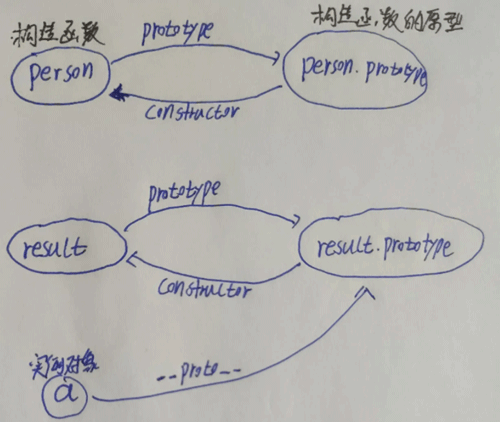 构造函数
prototype
构造函数的原型
person
person.prototype
constructor
prototype
result
result.prototype
constructor
实例对象
__proto__
a